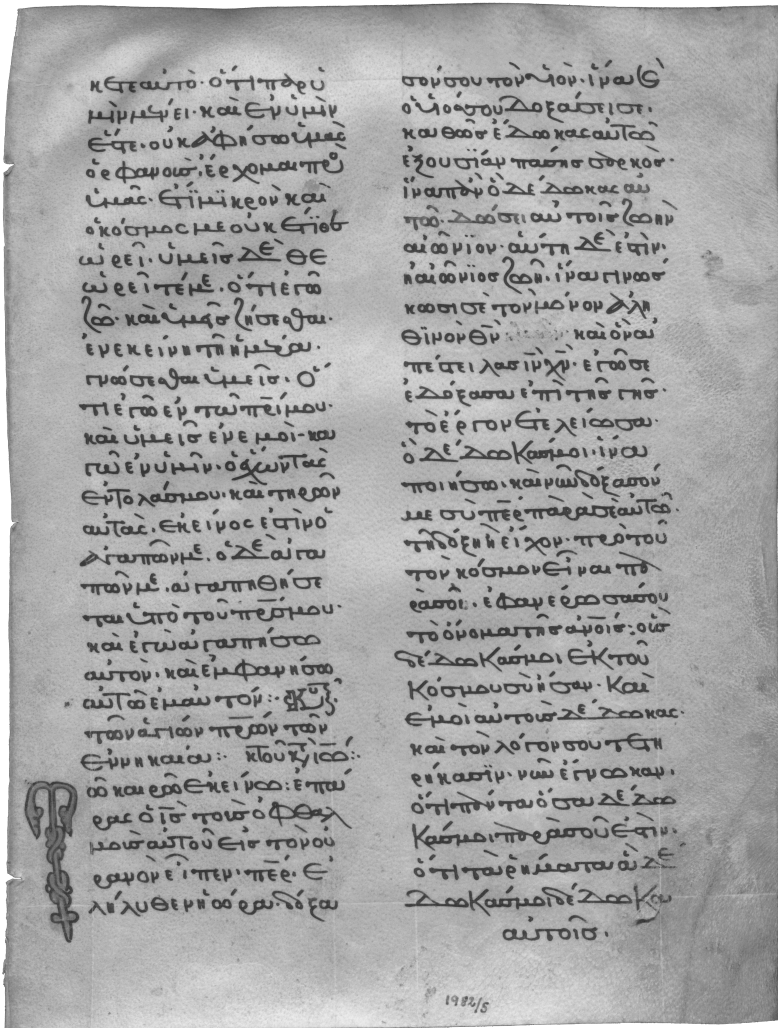 κετε αὐτό· ὅτι παρ' ὑ
μὶν μένει· καὶ ἐν ὑμὶν
ἔσται· οὐκ ἀφήσω ὑμᾶς
ὀρφανοὺς· ἔρχομαι πρὸ
ὑμᾶς· ἔτι μικρὸν καὶ
ὁ κόσμος με οὐκ ἔτι θε
ωρεῖ· ὑμεῖς δὲ θε
ωρεῖτέ με· ὅτι ἐγὼ
ζῶ· καὶ ὑμεῖς ζήσεσθαι·
ἐν ἐκείνῃ τῇ ἡμέρᾳ·
γνώσεσθαι ὑμεῖς· ὅ
τι ἐγὼ ἐν τῷ πρί μου·
καὶ ὑμεῖς ἐν ἐμοὶ· κα
γὼ ἐν ὑμῖν· ὁ ἔχων τὰς
ἐντολάς μου· καὶ τηρῶν
αὐτάς· ἐκεῖνος ἐστὶν ὁ
ἀγαπῶν με· ὁ δὲ ἀγα
πῶν με· ἀγαπηθήσε
ται ὑπὸ τοῦ πρσ μου·
καὶ ἐγὼ ἀγαπήσω
αὐτον· καὶ ἐμφανήσω
αὐτῷ ἐμαυτόν:
τῶν ἁγιων πρων τῶν
ἐν νηκαία:
ῶ καιρῶ ἐκείνω: ἐπα
ρας ὁ ις τοὺς ὀφθαλ
μοὺς αὐτοῦ εἰς τὸν οὐ
ρανὸν εἶπεν· περ· ἐ
λήλυθεν ἡ ὥρα· δόξα
σόν σου τὸν υἱόν· ἵνα καὶ
ὁ υἱός σου δοξάσει σε·
καθὼς ἔδωκας αὐτῷ
ἐξουσίαν πάσης σαρκός·
ἵνα πᾶν ὃ δέδωκας αυ
τῷ· δώσει αὐτοῖς ζωὴν
αἰώνιον· αὕτη δέ ἐστιν·
ἡ αἰώνιος ζωή· ἵνα γινώσ
κωσι σὲ τὸν μόνον ἀλη
θινὸν θν καὶ ὃν ἀ
πέστειλας ιν χν· ἐγώ σε
ἐδόξασα ἐπὶ τῆς γῆς·
τὸ ἔργον ἐτελείωσα·
ὃ δέδωκάς μοι· ἵνα
ποιήσω· καὶ νῦν δόξασόν
με σὺ περ παρὰ σεαυτῷ·
τῇ δόξῃ ἣ εἶχον· πρὸ τοῦ
τὸν κόσμον εἶναι πα
ρὰ σοί· ἐφανέρωσά σου
τὸ ὄνομα τοῖς ανοις· οὓς
δέδωκάς μοι ἐκ τοῦ
κόσμου σὺ ἦσαν· καὶ
ἐμοὶ αὐτοὺς δέδωκας·
καὶ τὸν λόγον σου τετη
ρήκασιν· νῦν ἔγνωκαν·
ὅτι πάντα ὅσα δέδω
κάς μοι παρὰ σοῦ ἐστιν·
ὅτι τὰ ῥήματα ἃ δέ
δωκάς μοι δέδωκα
αὐτοῖς·
1982/5